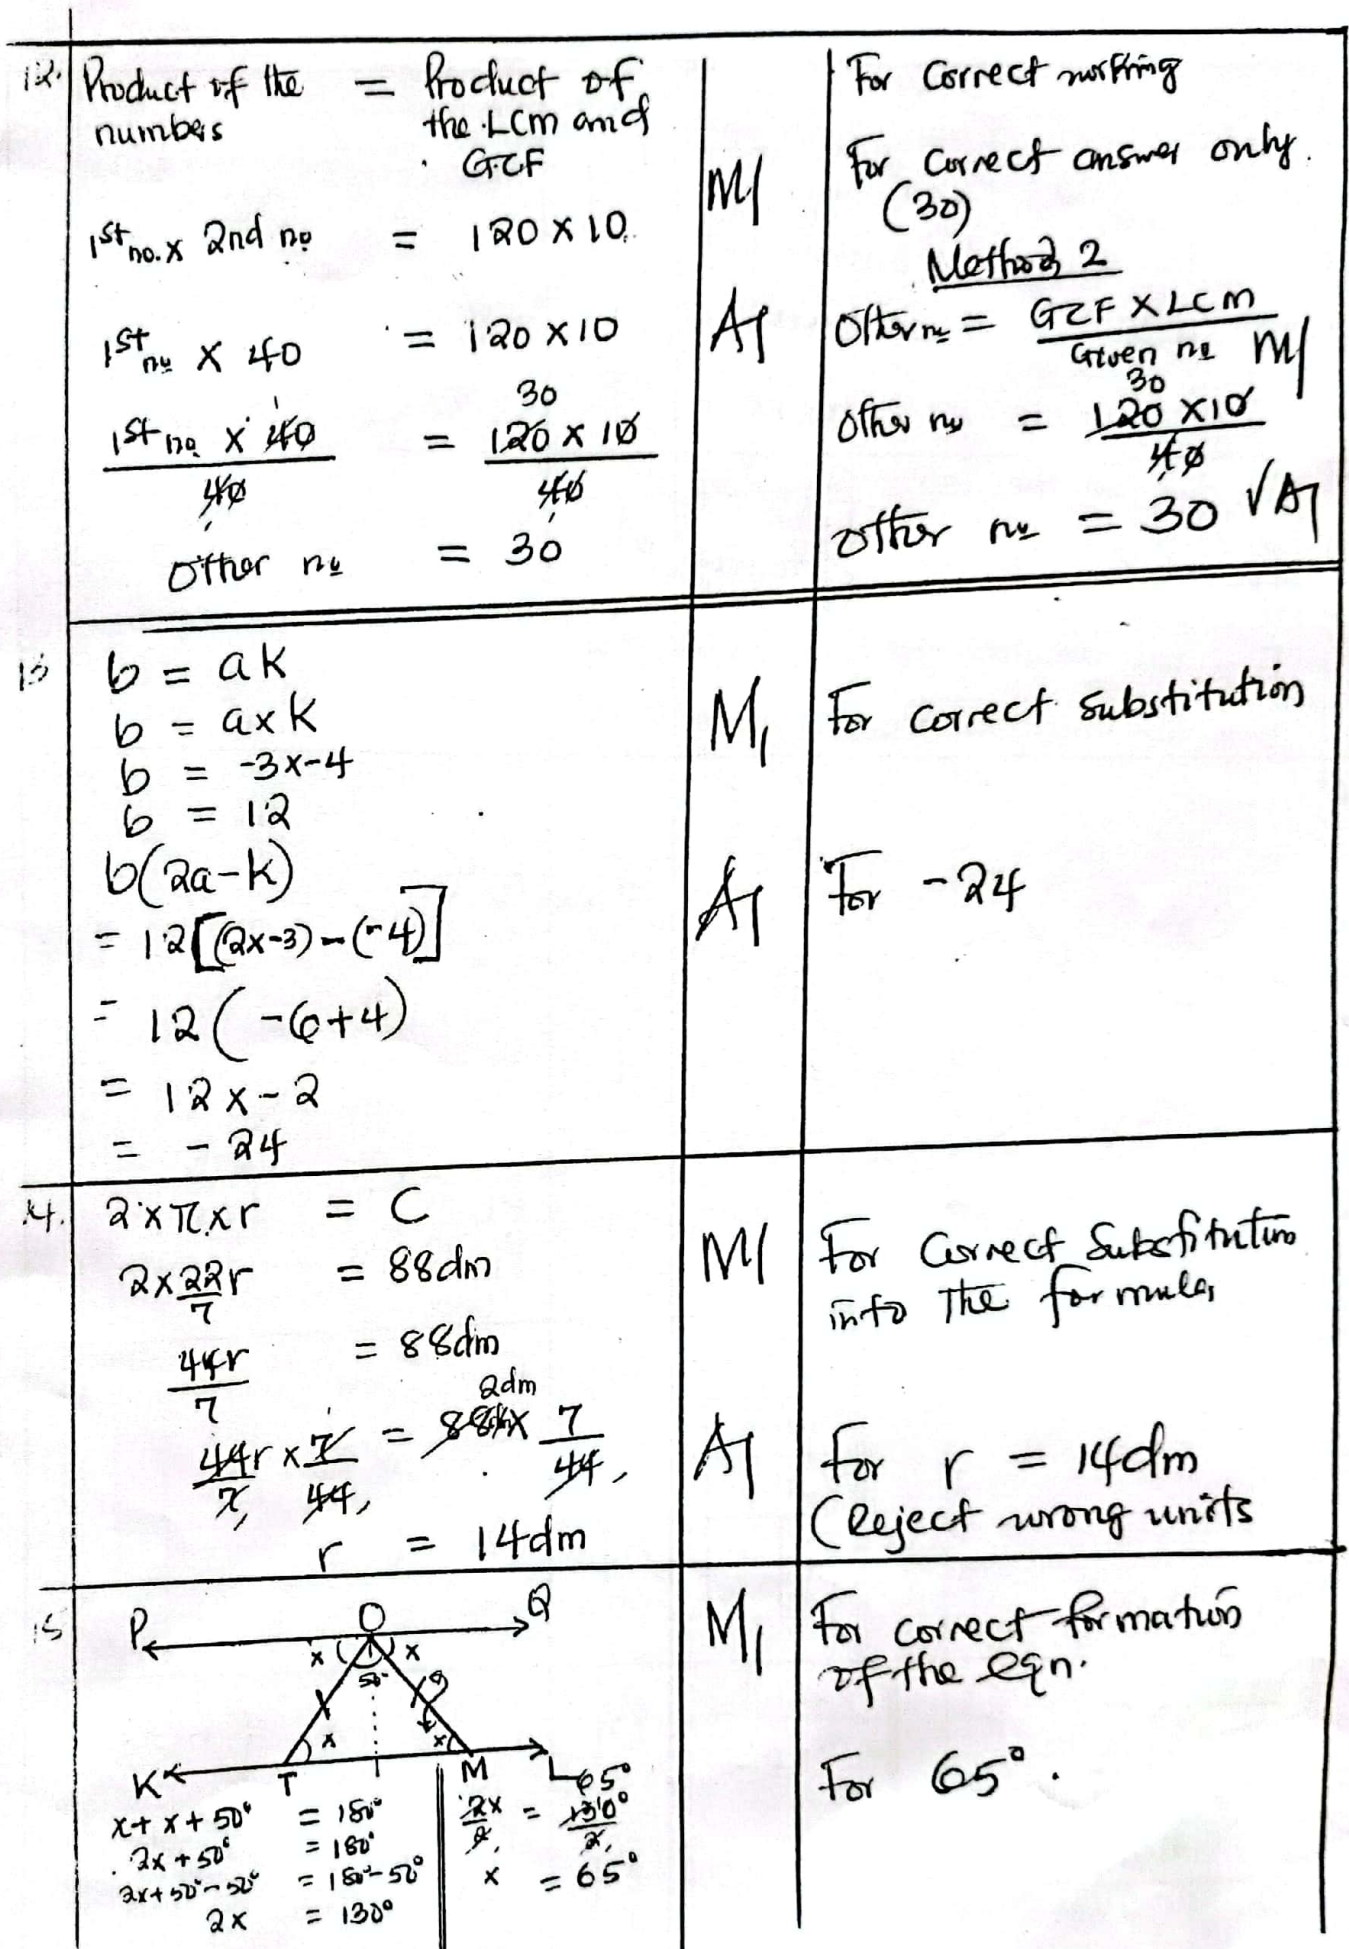 12. Product of the = Product of
numbers the LCM and
GCF
1st no. x 2nd no = 120 x 10
1st no x 40 = 120 x 10
1 30
1st no x 40 = 120 x 10
40 40
Other no = 30
M1
A1
For correct working
For correct answer only.
(30)
Method 2
Other no = GCF x LCM M1
Given no
30
Other no = 120 x 10
40
Other no = 30 √A1
13 b = ak
b = axk
b = -3x-4
b = 12
b(2a-k)
= 12[(2x-3)-(-4)]
= 12(-6+4)
= 12x-2
= -24
M1 For correct substitution
A1 For -24
14. 2xπxr = C
2x22r = 88dm
7
44r = 88dm
7
2dm
44r x 7 = 88dm x 7
7 44 44
r = 14dm
M1 For Correct Substitution
into the formula
A1 For r = 14dm
(Reject wrong units
15 P O Q
x x
50°
x x
K T M L
x+x+50° = 180°
2x+50° = 180°
2x+50°-50° = 180°-50°
2x = 130°
65°
2x = 130°
2 2
x = 65°
M1 For correct formation
of the eqn.
For 65°.